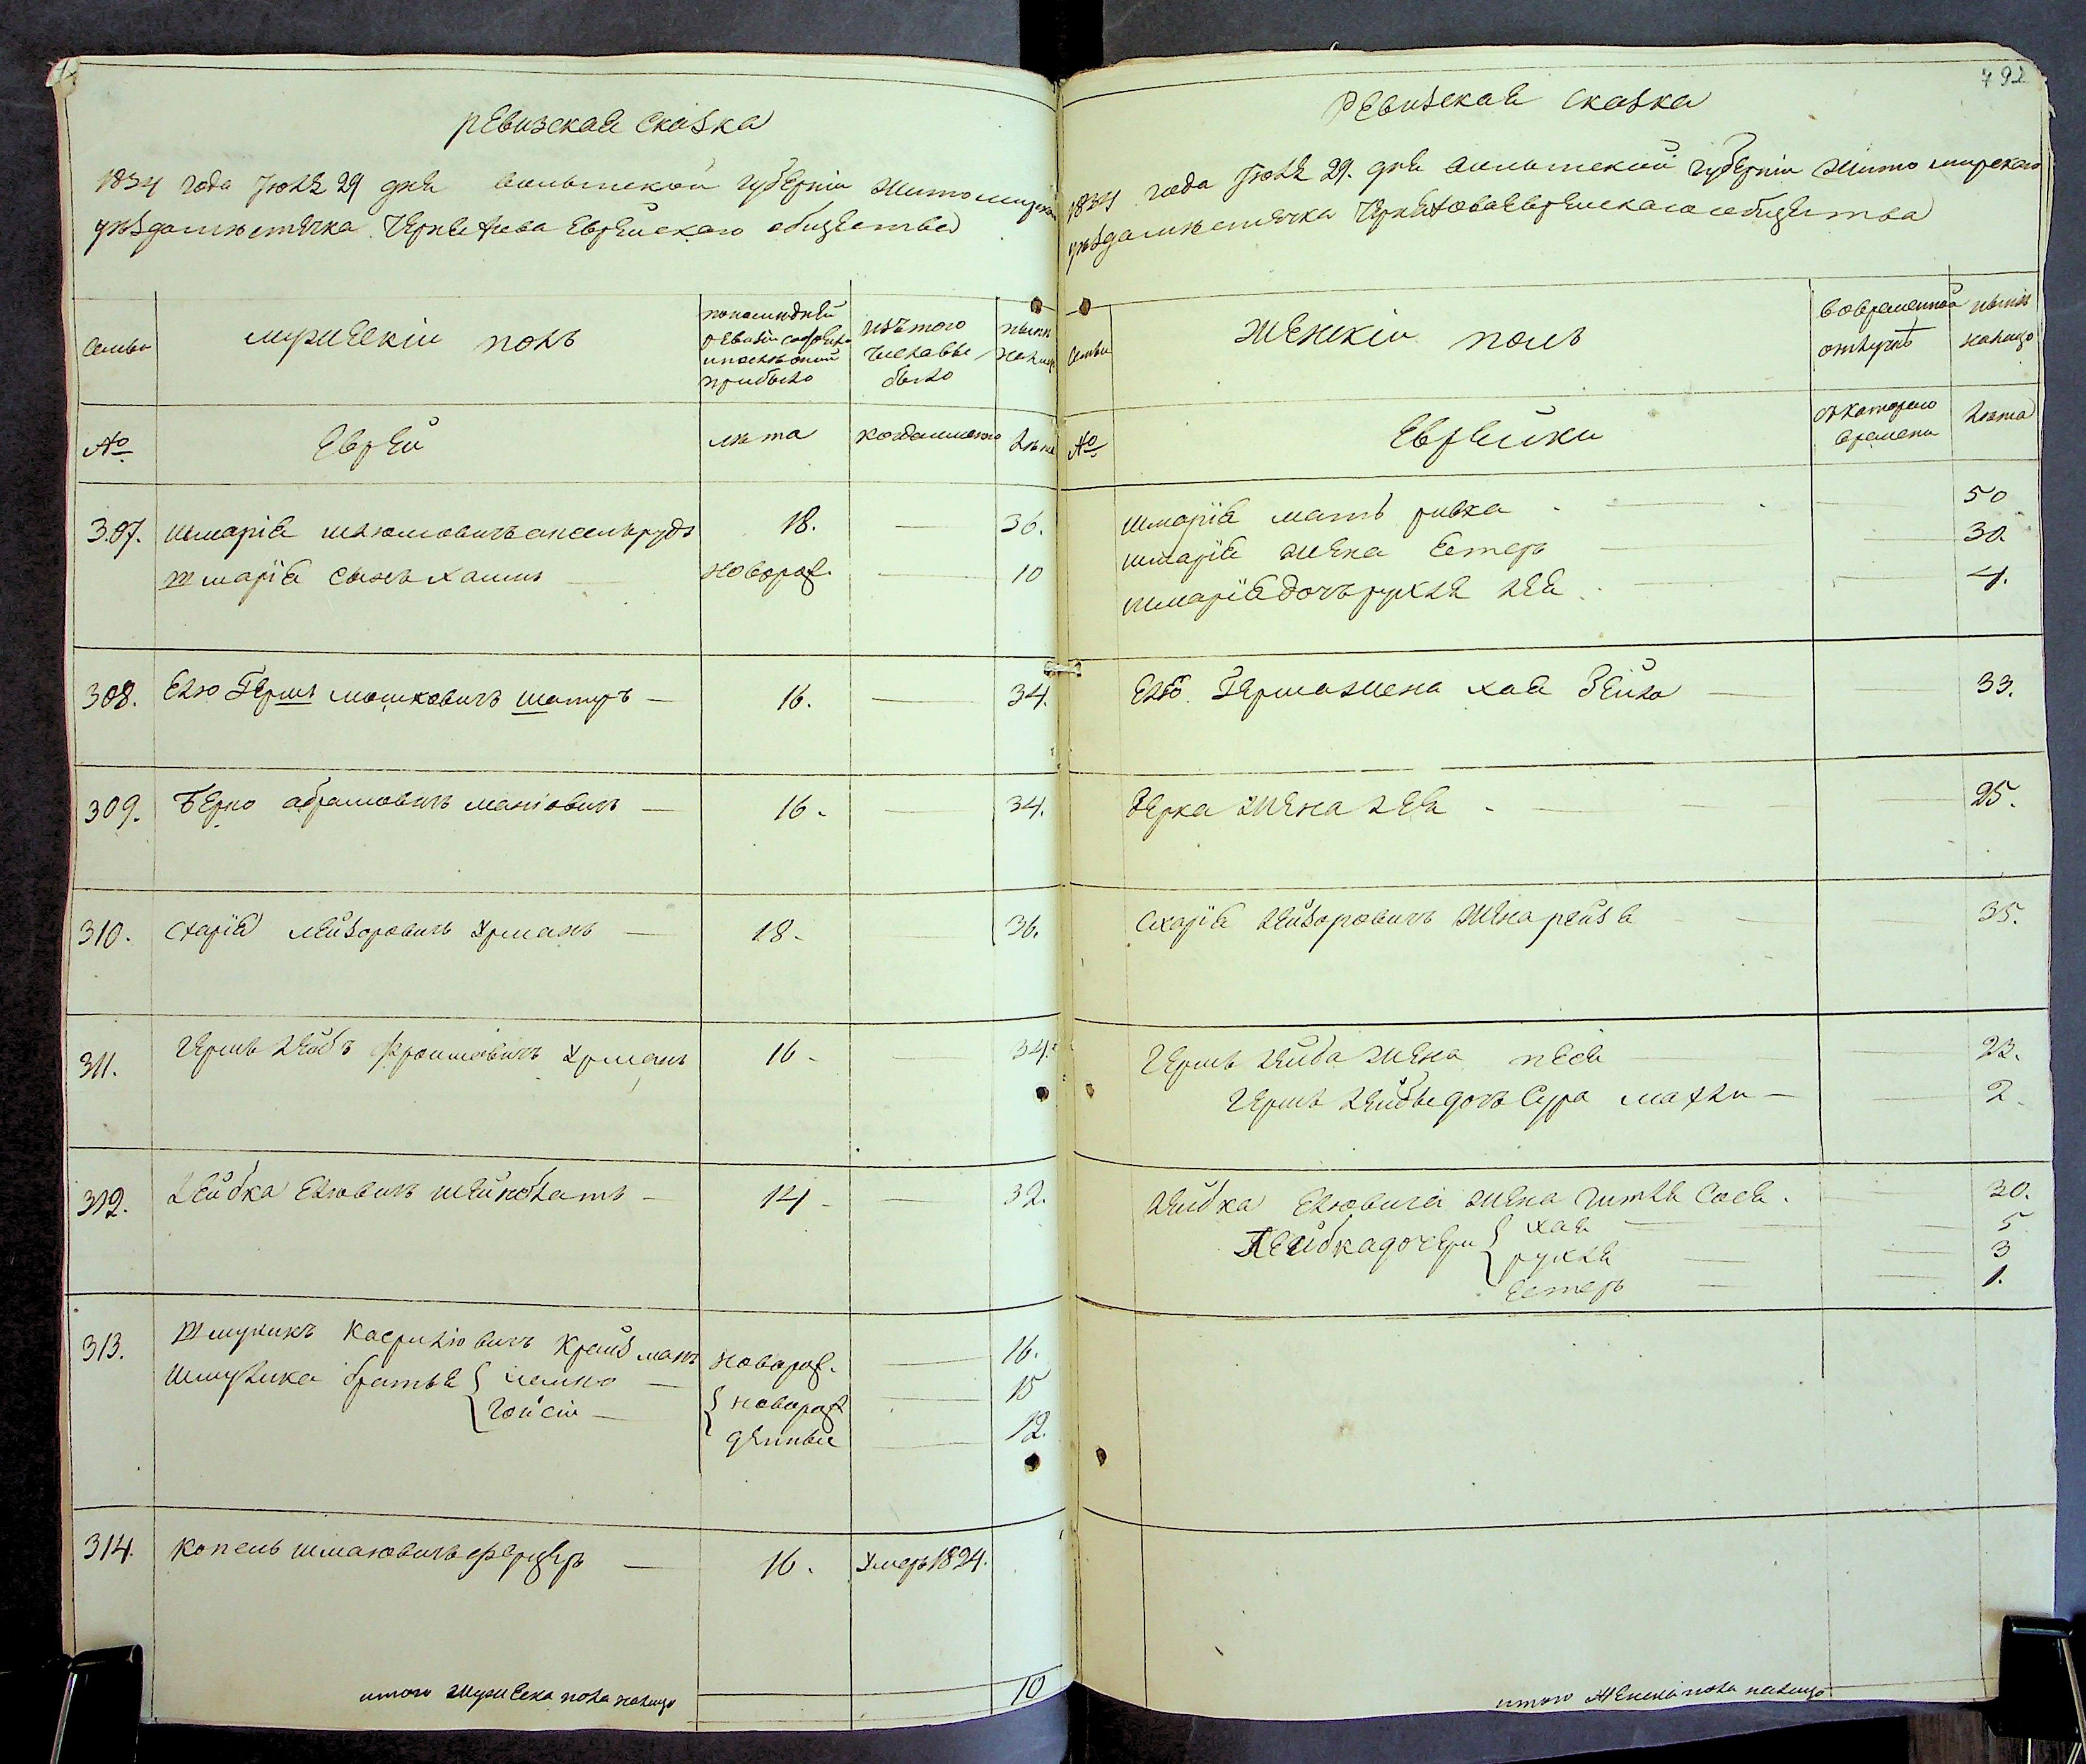 ревизская сказка
1834 года Июля 29 дня волынской губерніи житомирска
уѣзда мѣстечка Черняхова Еврейскаго общества
семьи
мужескій полъ
по последней ревизіи состояло и после оной прибыло
изъ того числа выбыло
нынѣ на лицо
№
Еврей
лѣта
когда именно
лѣта
307. шмарія шлюмовичъ аксельрудъ 18. — 36.
шмарія сынъ хаимъ — новорож. — 10
308. Елю Гершъ мошковичъ шатуръ — 16. — 34.
309. Берко абрамовичъ маніовичъ — 16. — 34.
310. схарія лейзоровичъ Урманъ — 18. 36.
311. Гершъ лейбъ фроимовичъ Урманъ 16. 34.
312. лейбка Елювичъ шейнблатъ — 14 — 32.
313. Шмуликъ Касрилювичъ Крайзманъ новорож. — 16.
шмулика братья { —  { новорож — 15
— денные — 12.
314. копель шмаювичъ — 16. Умеръ 1824.
итого мужеска пола налицо 10
792
Ревизская сказка
1834 года Июля 29. дня волынской губерніи житомирскаго
уѣзда мѣстечка Черняхова Еврейскаго общества
семьи
женскій полъ
во временной отлучкѣ
нынѣ налицо
№
Еврейки
съ котораго времени
лѣта
шмарія мать ривка — 50
шмарія жена Естеръ — 30
шмарія дочъ рухля лея — 4.
Елю Герша жена хая бейла — 33.
Берка жена лея — 25.
схарія лейзоровичъ жена рейзя 35.
Гершъ лейба жена песя 23.
Гершъ лейбы дочъ Сура махли — 2
лейбка Елювича жена гитля сося. 30.
Лейбка дочери { хая — 5
рухля — 3
Естеръ — 1.
итого женска пола налицо